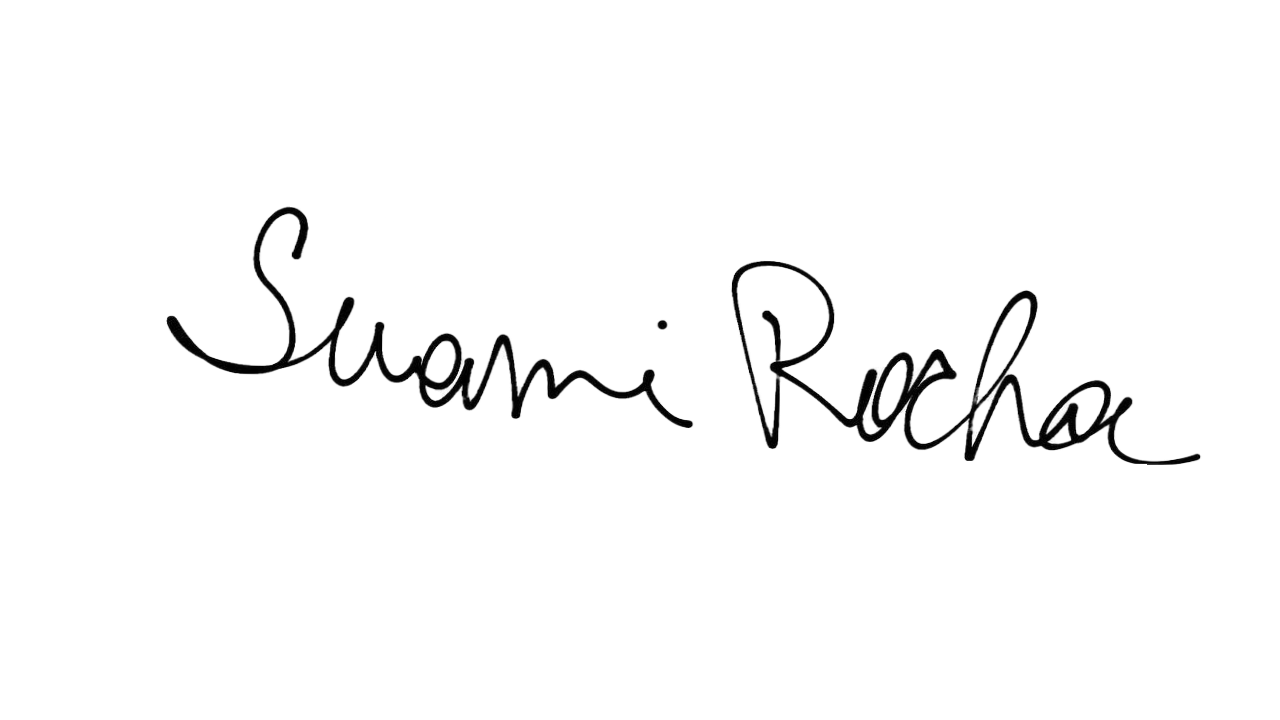 Swami Rocha